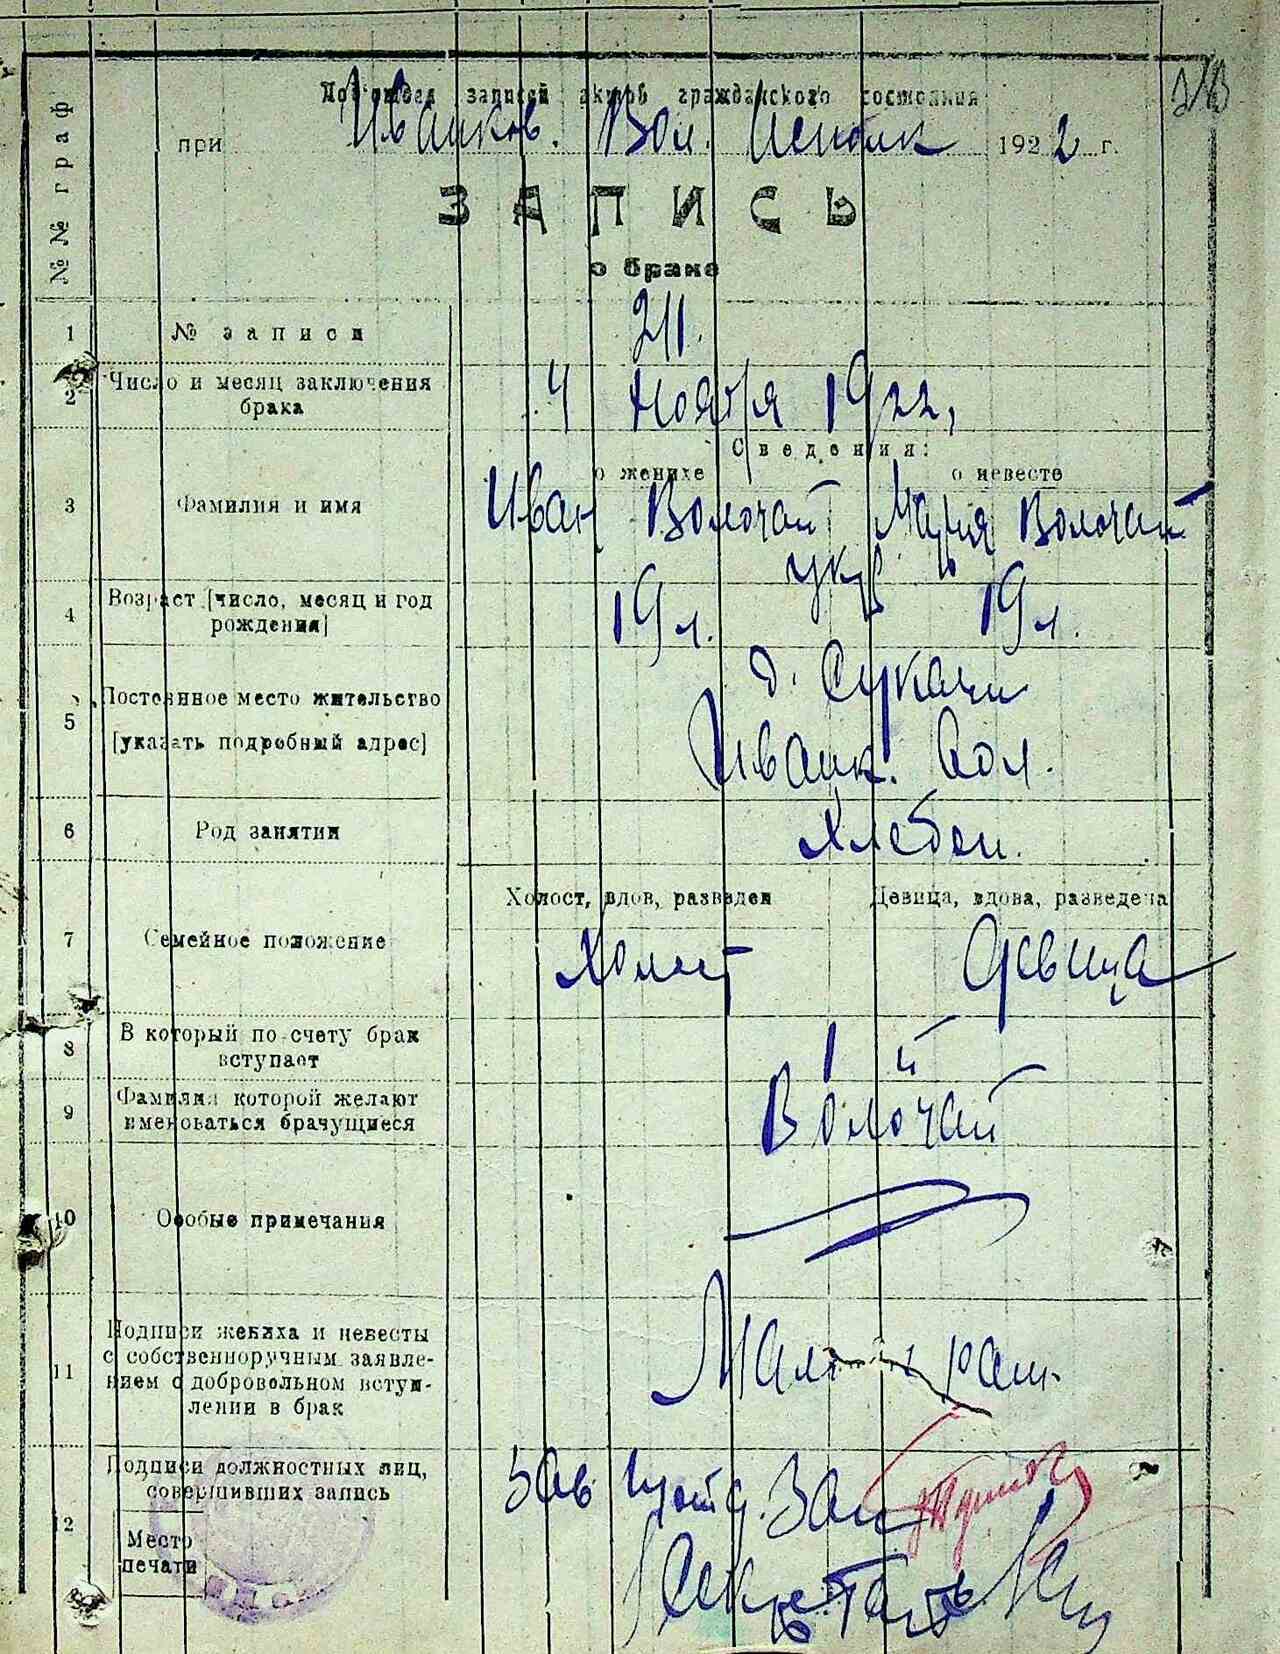 Подотдел записей актов гражданского состояния
при Иванков. Вол. Исполк 1922 г.
№№ граф
ЗАПИСЬ
о браке
1 № записи 211.
2 Число и месяц заключения брака 4 Ноября 1922,
Сведения:
о женихе о невесте
3 Фамилия и имя Иван Волочай Мария Волочай
укр
4 Возраст [число, месяц и год рождения] 19 л. 19 л.
5 Постоянное место жительство [указать подробный адрес] д. Сукачи
Иванк. Вол.
6 Род занятий Хлебоп.
Холост, вдов, разведен Девица, вдова, разведена
7 Семейное положение Холост Девица
8 В который по счету брак вступает 1 й
9 Фамилия которой желают именоваться брачущиеся Волочай
10 Особые примечания
11 Подписи жениха и невесты с собственноручным заявлением о добровольном вступлении в брак
12 Подписи должностных лиц, совершивших запись Зав
Место печати Секретарь